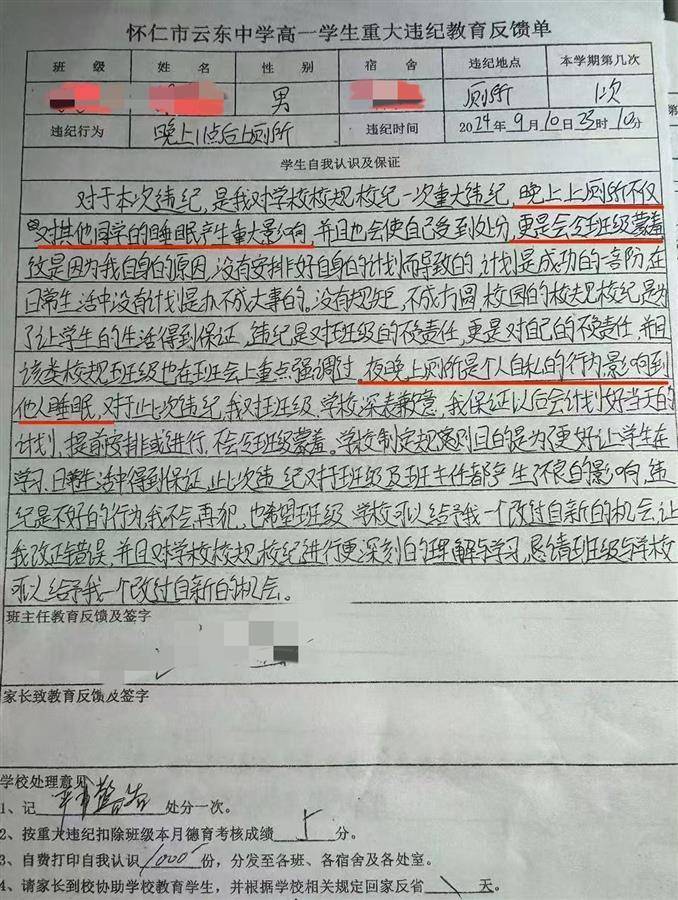 怀仁市云东中学高一学生重大违纪教育反馈单
班 级 姓 名 性 别 宿 舍 违纪地点 本学期第几次
男 厕所 1次
违纪行为 晚上11点后上厕所 违纪时间 2024年9月10日23时10分
学生自我认识及保证
对于本次违纪,是我对学校校规校纪一次重大违纪,晚上上厕所不仅
对其他同学的睡眠产生重大影响,并且也会使自己受到处分,更是会令班级蒙羞
这是因为我自身的原因,没有安排好自身的计划而导致的,计划是成功的一部分,在
日常生活中没有计划是办不成大事的。没有规矩,不成方圆,校园的校规校纪是为
了让学生的生活得到保证,违纪是对班级的不负责任,更是对自己的不负责任,并且
该类校规班级也在班会上重点强调过,夜晚上厕所是个人自私的行为影响到
他人睡眠,对于此次违纪,我对班级、学校深表歉意,我保证以后会计划好当天的
计划,提前安排或进行,不会令班级蒙羞。学校制定规章原则目的是为了更好让学生在
学习、日常生活中得到保证,此次违纪对于班级及班主任都产生了不良的影响,违
纪是不好的行为我不会再犯,也希望班级、学校可以给予我一个改过自新的机会,让
我改正错误,并且对学校校规、校纪进行更深刻的理解与学习,恳请班级与学校
可以给予我一个改过自新的机会。
班主任教育反馈及签字
家长致教育反馈及签字
学校处理意见
1、记 严重警告 处分一次。
2、按重大违纪扣除班级本月德育考核成绩 5 分。
3、自费打印自我认识 1000 份,分发至各班、各宿舍及各处室。
4、请家长到校协助学校教育学生,并根据学校相关规定回家反省 \ 天。